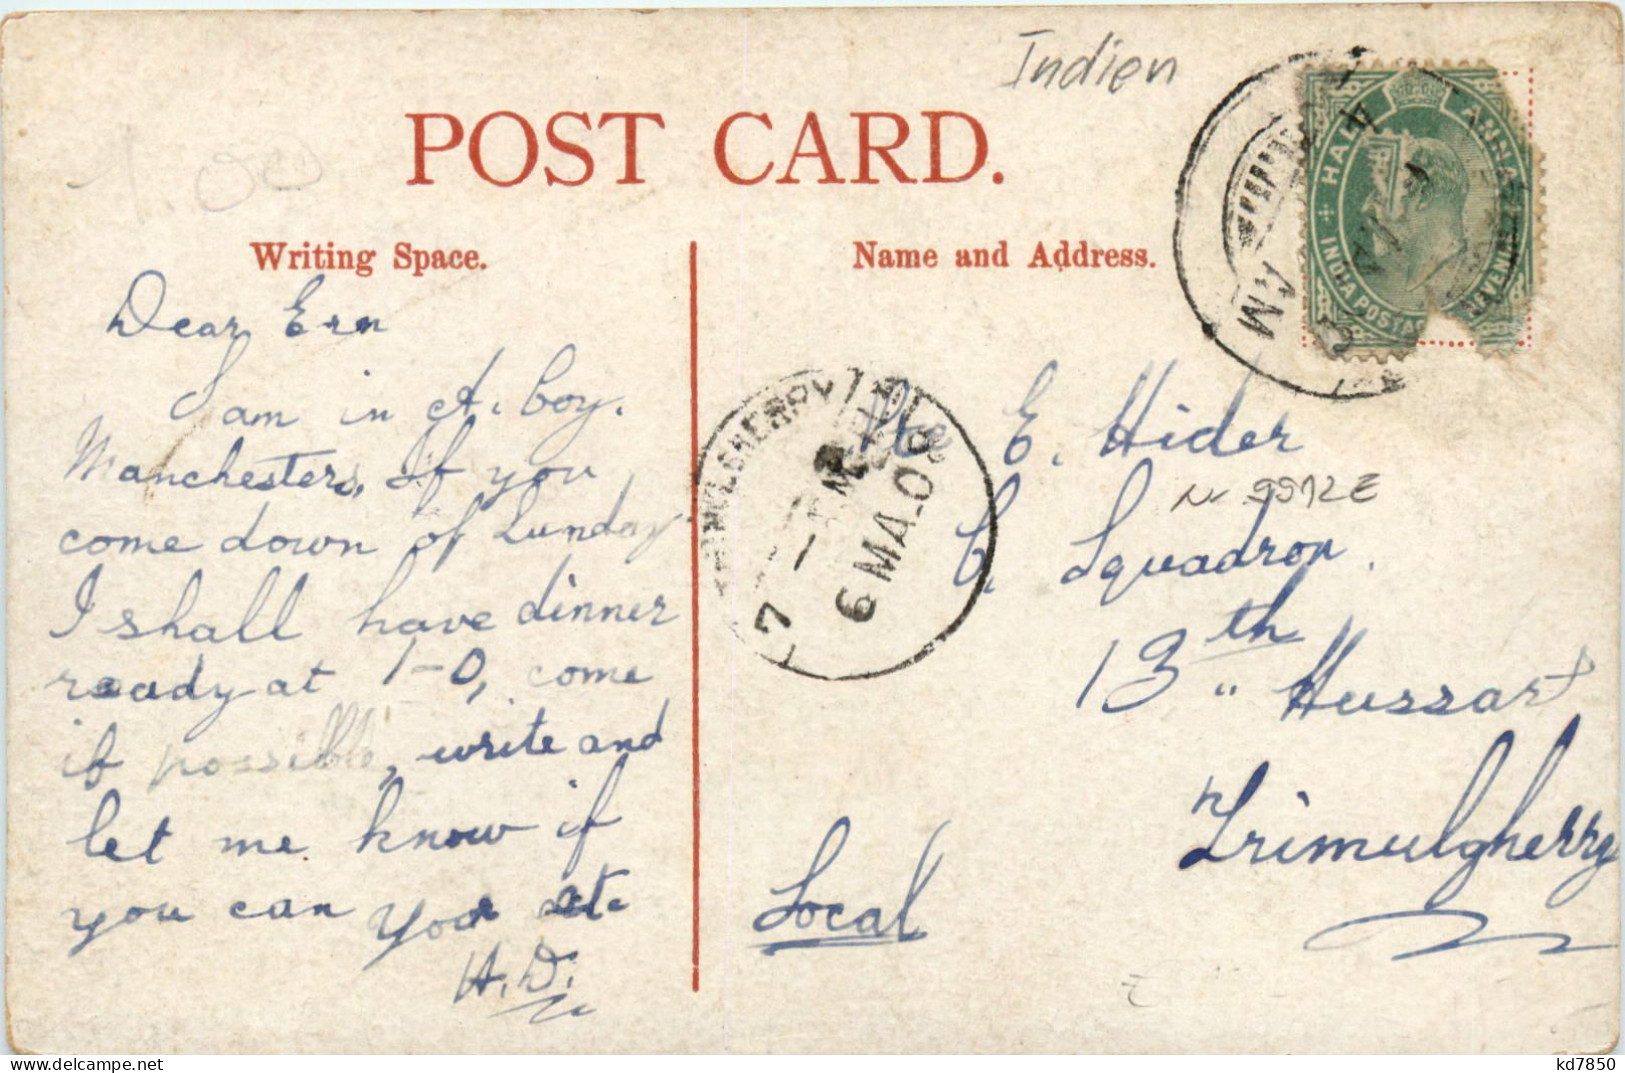 Indien
POST CARD.
1.00
Writing Space.
Name and Address.
HALF ANNA
INDIA POSTAGE
REVENUE
AM
Dear Ern
I am in A. boy.
Manchesters, If you
come down of Sunday
I shall have dinner
ready at 1-0, come
if possible, write and
let me know if
you can
H.D.
TRIMULGHERRY
7
6 MA. 09
E. Hider
C, Squadron.
13th Hussars
Trimulgherry
Local
kd7850